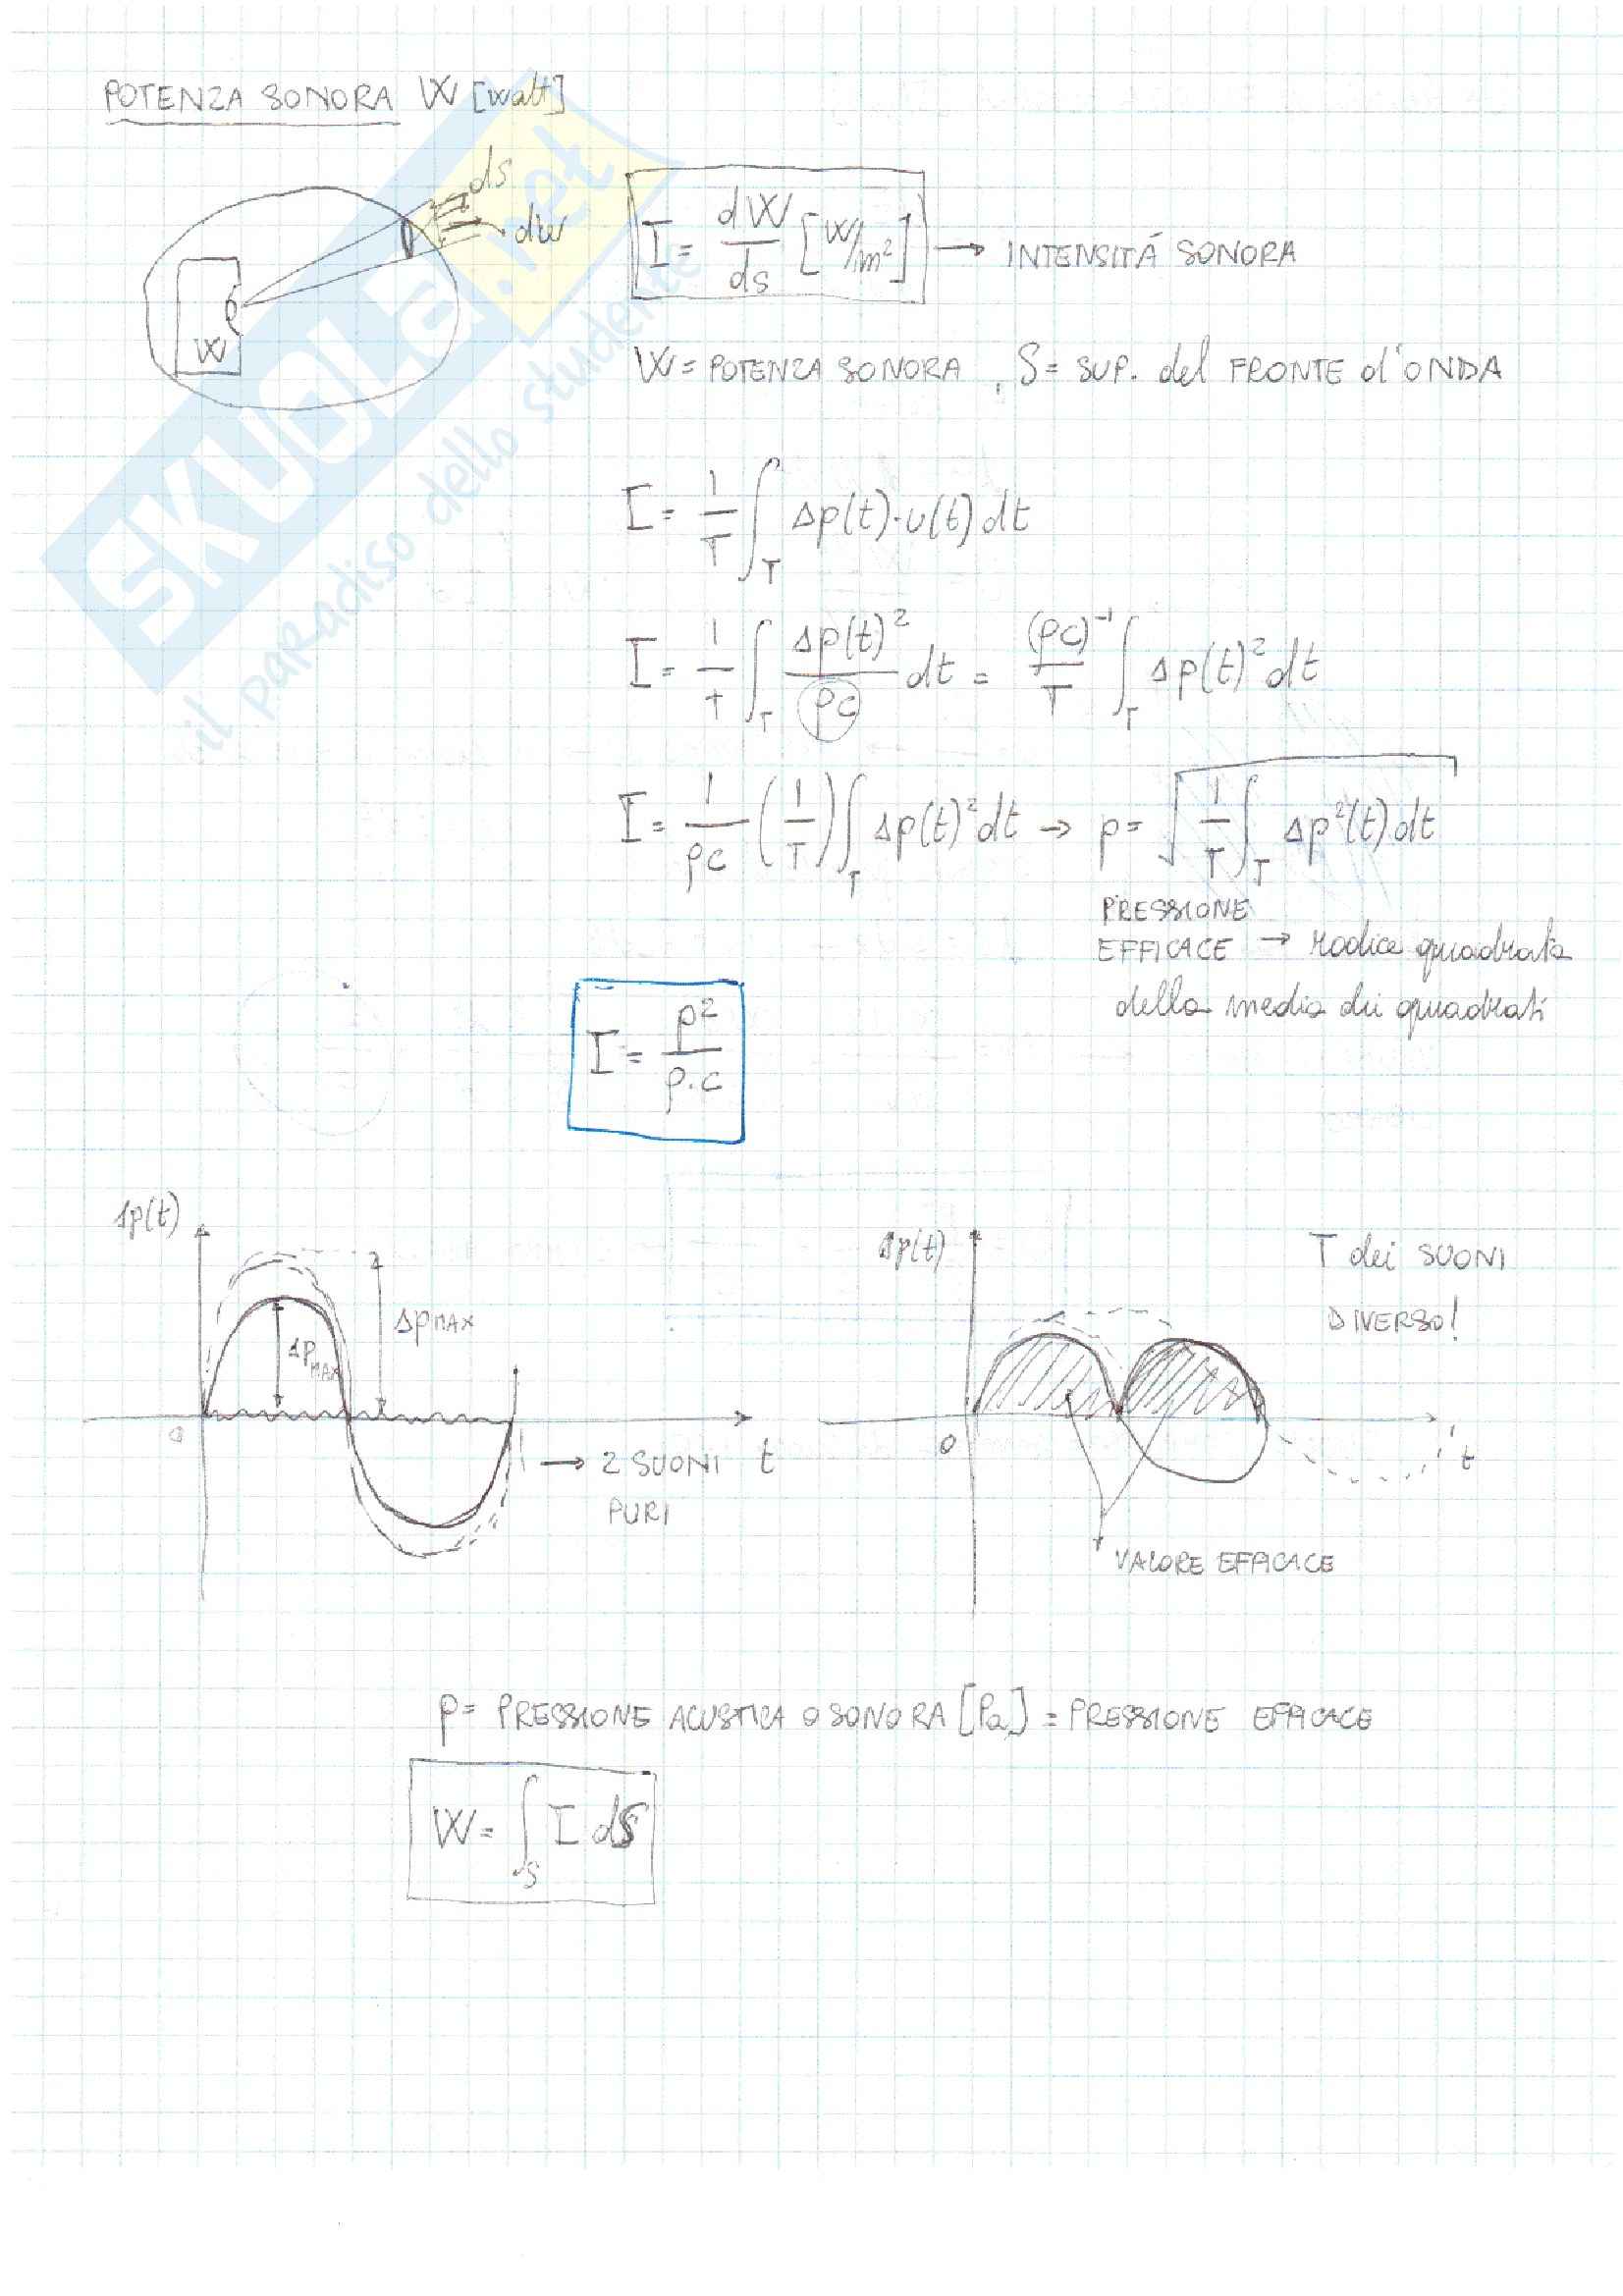 POTENZA SONORA W [watt]
ds
dW
W
I = dW/ds [W/m²] → INTENSITÁ SONORA
W = POTENZA SONORA, S = SUP. del FRONTE d'ONDA
I = 1/T ∫_T Δp(t)·v(t) dt
I = 1/T ∫_T Δp(t)²/ρc dt = (ρc)⁻¹/T ∫_T Δp(t)² dt
I = 1/ρc (1/T) ∫_T Δp(t)² dt → p = √(1/T ∫_T Δp²(t) dt)
PRESSIONE
EFFICACE → radice quadrata
della media dei quadrati
I = p²/ρ·c
Δp(t)
Δp MAX
Δp MAX
0
→ 2 SUONI
PURI
t
Δp(t)
T dei SUONI
DIVERSO!
0
t
VALORE EFFICACE
p = PRESSIONE ACUSTICA O SONORA [Pa] = PRESSIONE EFFICACE
W = ∫_S I dS
SKUOLA.net
il paradiso dello studente